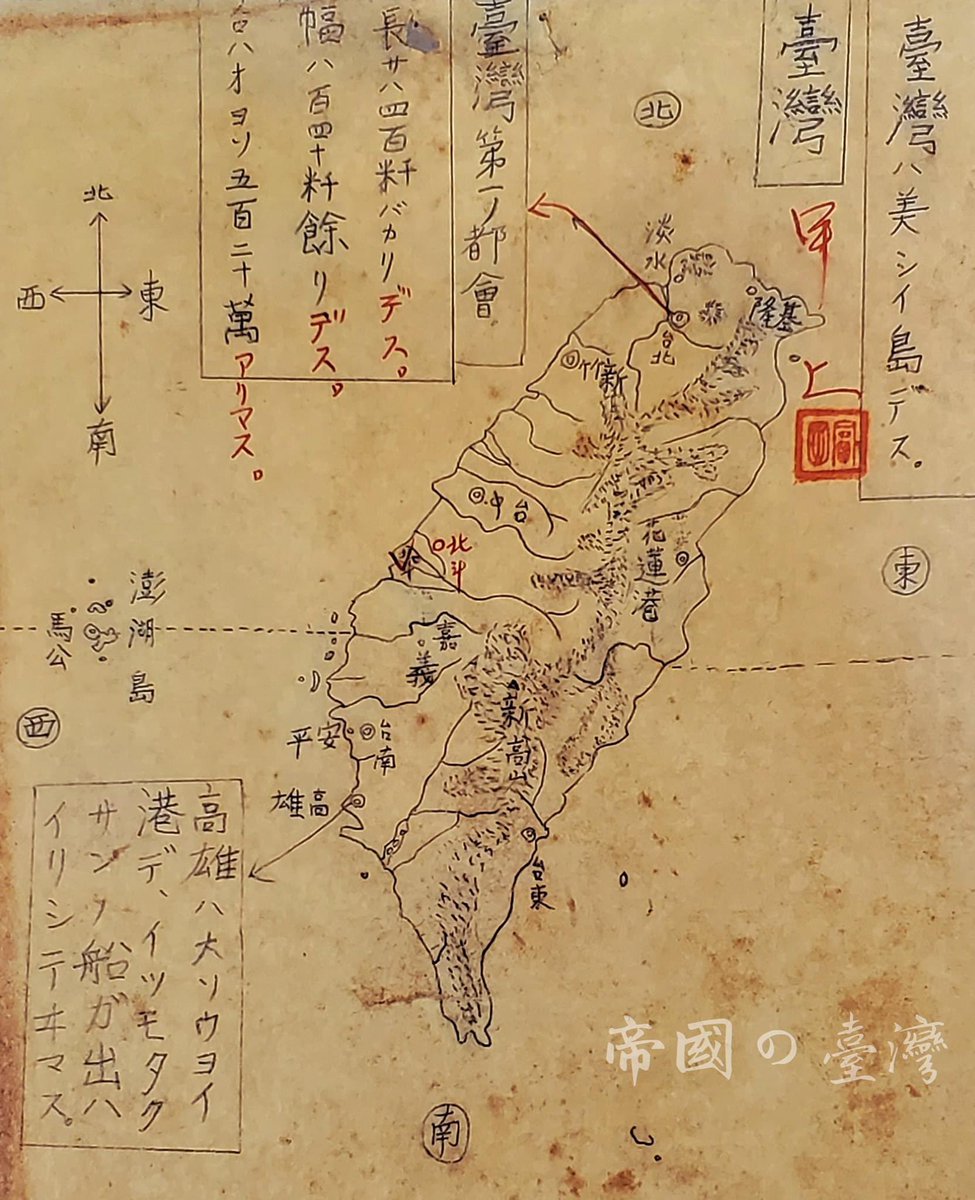 臺灣ハ美シイ島デス。
臺灣
甲上
北
臺灣第一ノ都會
長サハ四百粁バカリデス。
幅ハ百四十粁餘リデス。
ハオヨソ五百二十萬アリマス。
北
東
西
南
淡水
基隆
台北
新竹
台中
北斗
花蓮港
東
澎湖島
馬公
嘉義
新高山
西
安平
台南
高雄
台東
高雄ハ大ソウヨイ
港デ、イツモタク
サンノ船ガ出ハ
イリシテヰマス。
南
帝國の臺灣